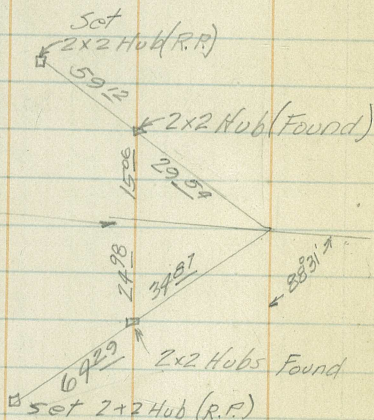 Set
2x2 Hub (R.P.)
59 12
2x2 Hub (Found)
15 06
29 54
24 98
34 87
88°31'
64 29
2x2 Hubs Found
set 2x2 Hub (R.P.)